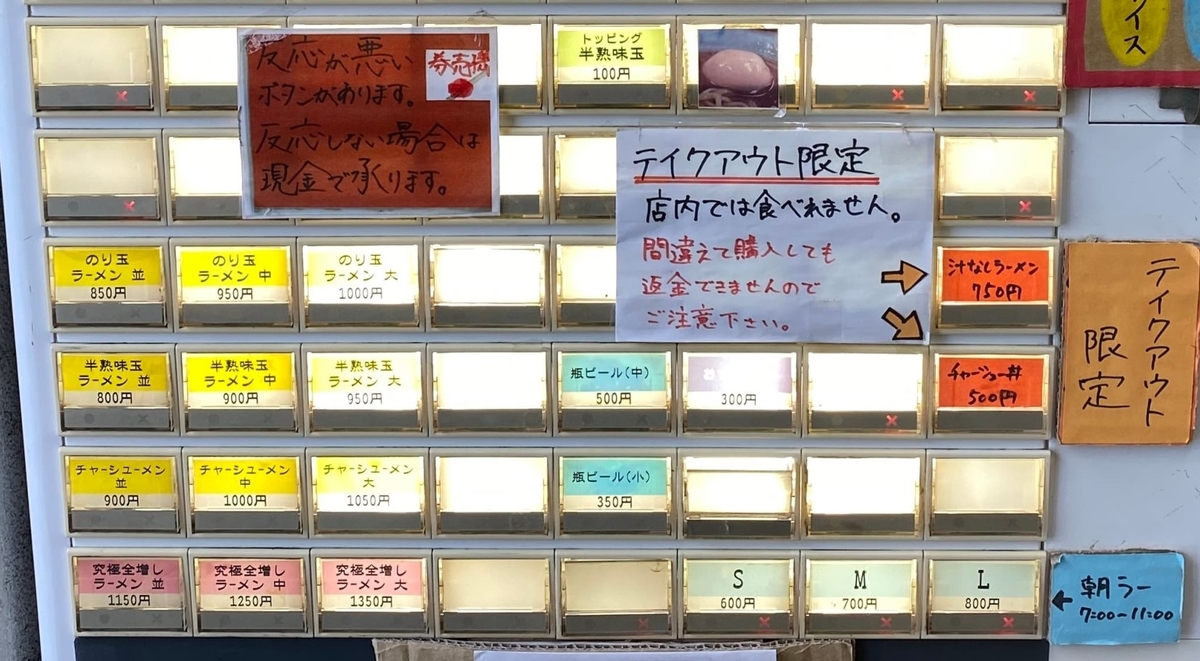 イス
トッピング
半熟味玉
100円
反応が悪い
ボタンがあります。
反応しない場合は
現金で承ります。
券売機
テイクアウト限定
店内では食べれません。
間違えて購入しても
返金できませんので
ご注意下さい。
のり玉
ラーメン 並
850円
のり玉
ラーメン 中
950円
のり玉
ラーメン 大
1000円
汁なしラーメン
750円
テイクアウト
限定
半熟味玉
ラーメン 並
800円
半熟味玉
ラーメン 中
900円
半熟味玉
ラーメン 大
950円
瓶ビール(中)
500円
300円
チャーシュー丼
500円
チャーシューメン
並
900円
チャーシューメン
中
1000円
チャーシューメン
大
1050円
瓶ビール(小)
350円
究極全増し
ラーメン 並
1150円
究極全増し
ラーメン 中
1250円
究極全増し
ラーメン 大
1350円
S
600円
M
700円
L
800円
朝ラー
7:00~11:00